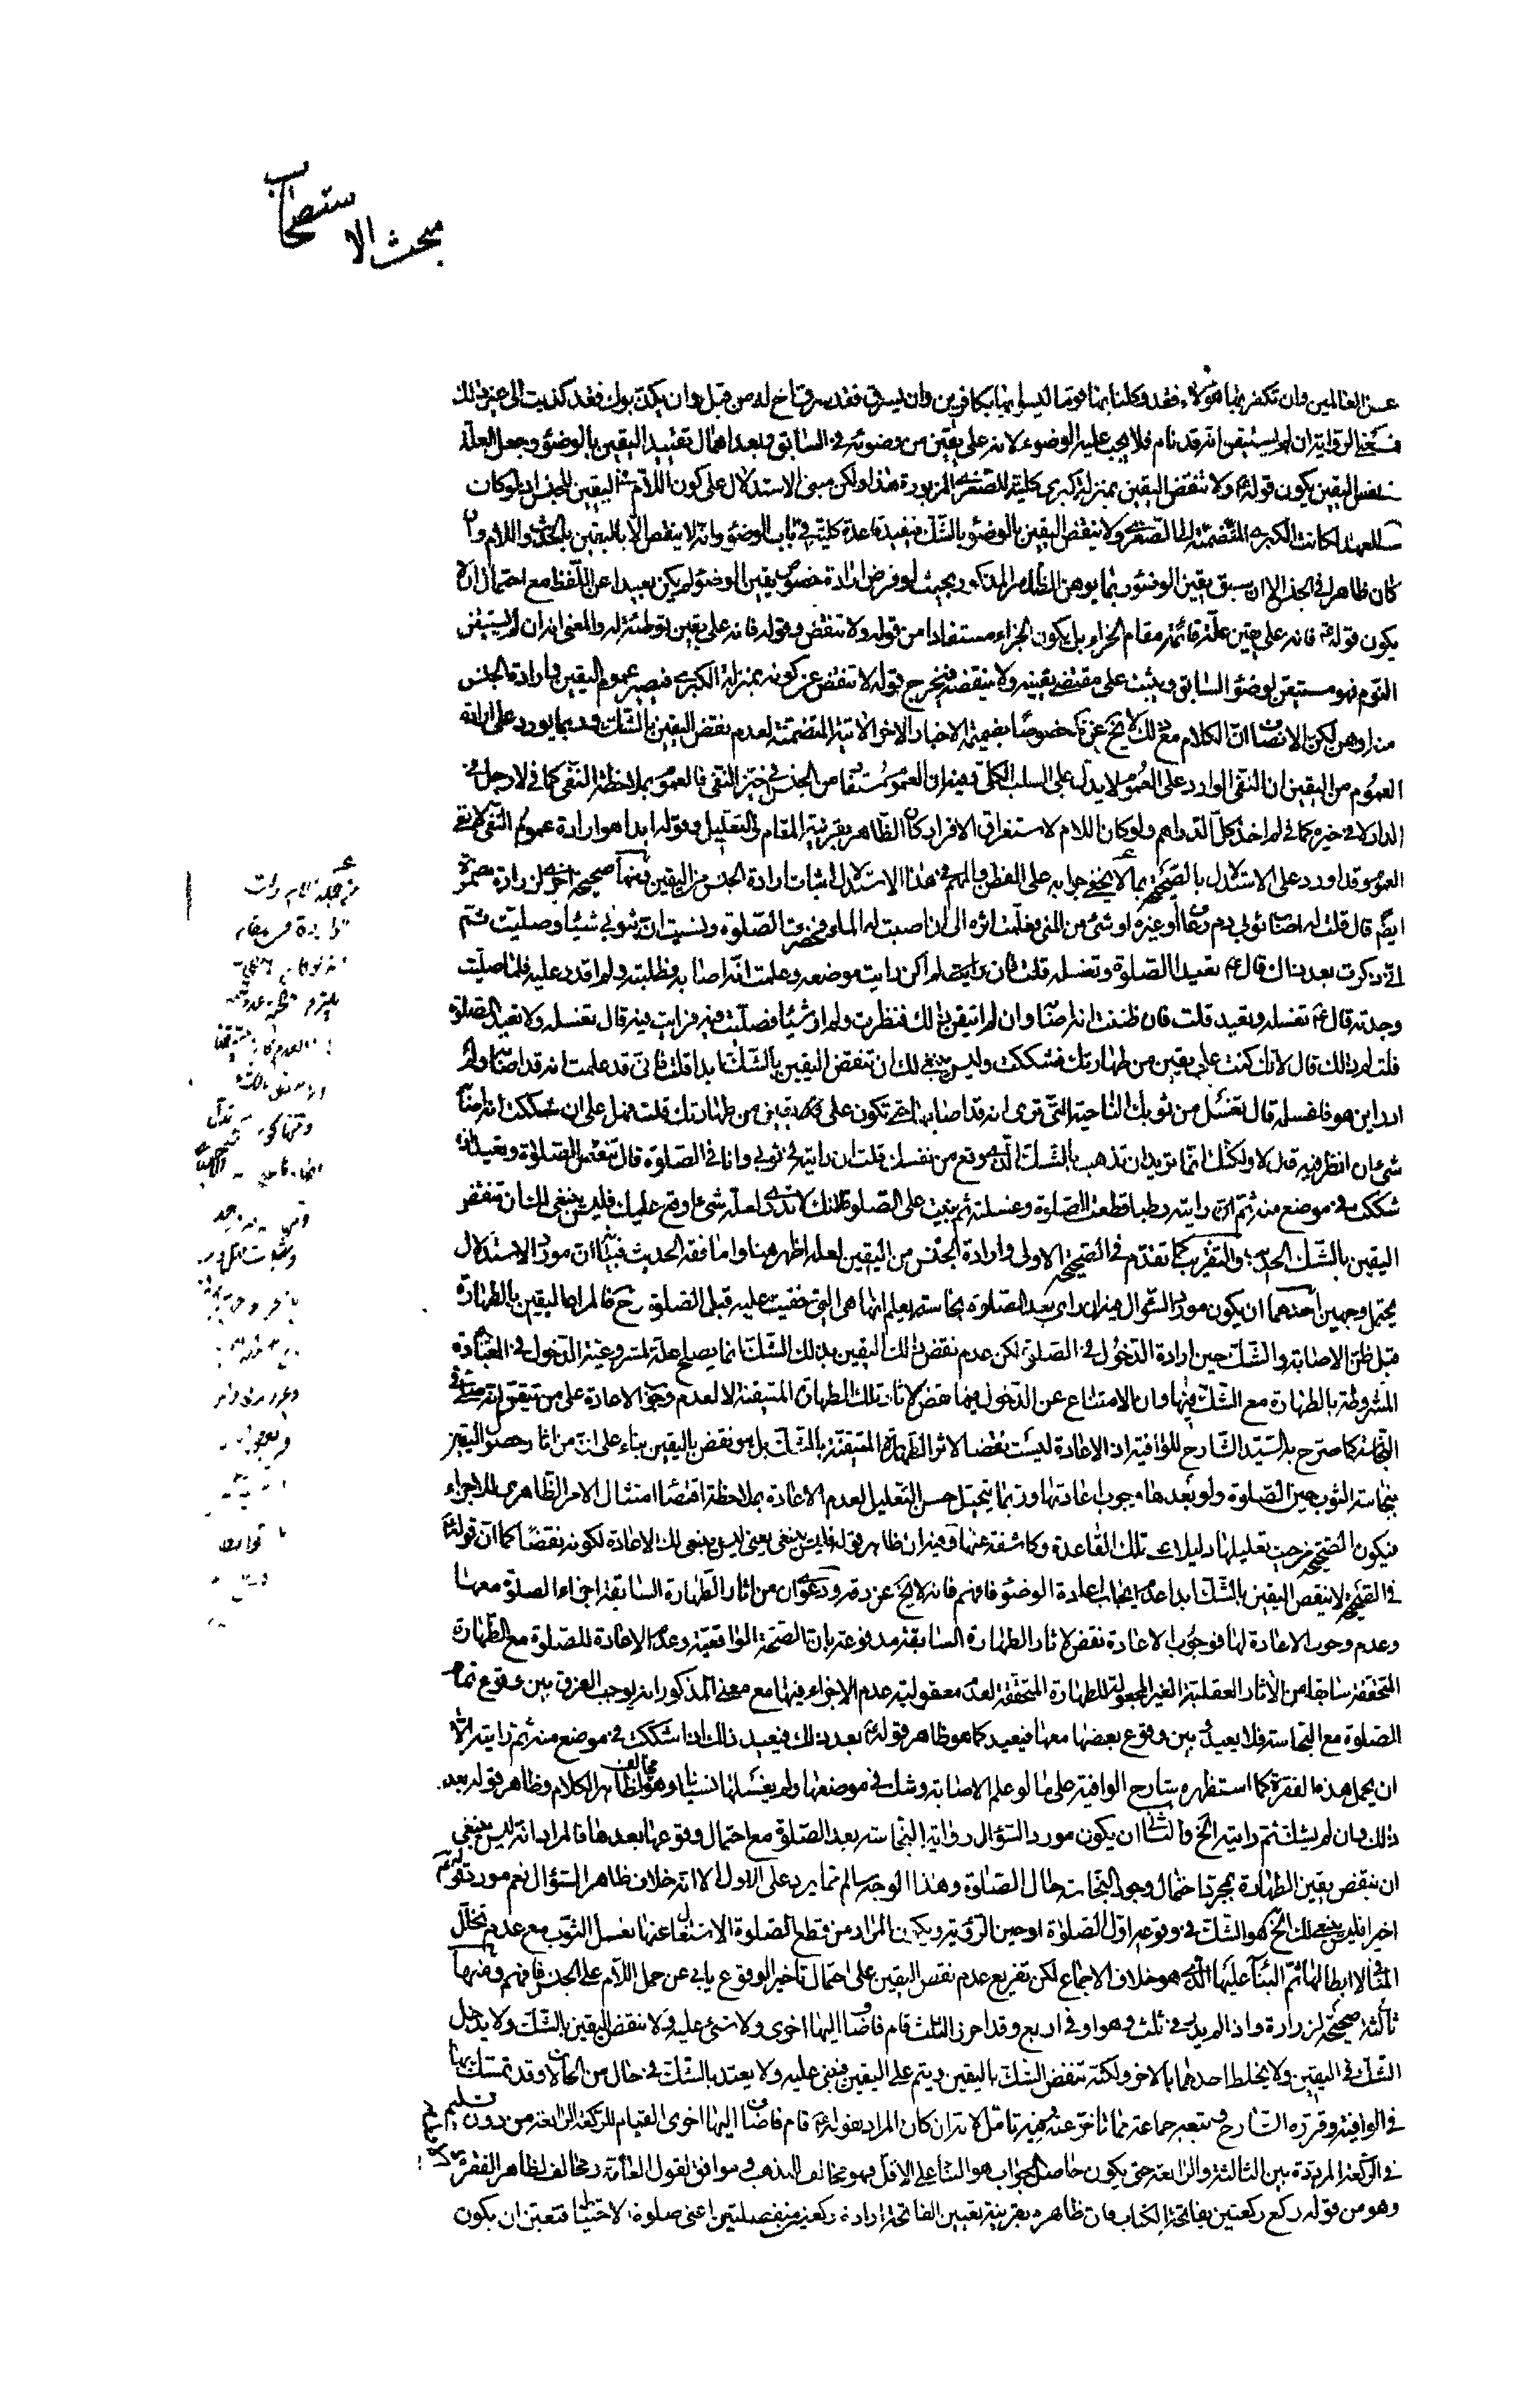 مبحث الاستصحاب
عن العالمين وان تكفر بها هؤلاء فقد وكلنا بها قوما ليسوا بها بكافرين وان يسرق فقد سرق اخ له من قبل وان يكذبوك فقد كذبت الى غير ذلك
فمعنى الرواية ان لم يستيقن انه قد نام فلا يجب عليه الوضوء لانه على يقين من وضوئه في السابق وبعد اهمال تقييد اليقين بالوضوء وجعل العلة
نفس اليقين يكون قوله ع ولا تنقض اليقين بمنزلة كبرى كلية للصغرى المزبورة هذا ولكن مبنى الاستدلال على كون اللام في اليقين للجنس اذ لو كانت
للعهد لكانت الكبرى المنضمة الى الصغرى ولا ينقض اليقين بالوضوء بالشك فيفيد قاعدة كلية في باب الوضوء وانه لا ينقض الا باليقين بالحدث واللام وان
كان ظاهرا في الجنس الا ان سبق يقين الوضوء ربما يوهن الظهور المذكور بحيث لو فرض ارادة خصوص يقين الوضوء لم يكن بعيدا عن اللفظ مع احتمال ان لا
يكون قوله ع فانه على يقين علة قائمة مقام الجزاء بل يكون الجزاء مستفادا من قوله ولا تنقض وقوله فانه على يقين توطئة له والمعنى انه ان لم يستيقن
النوم فهو مستيقن لوضوئه السابق ويثبت على مقتضى يقينه ولا ينقضه فيخرج قوله لا تنقض عن كونه بمنزلة الكبرى فيصير عموم اليقين وارادة الجنس
منه اوهن لكن الانصاف ان الكلام مع ذلك لا يخ عن ظهور خصوصا بضميمة الاخبار الاخر الاتية المتضمنة لعدم نقض اليقين بالشك وربما يورد على ارادة
العموم من اليقين ان النفي الوارد على العموم لا يدل على السلب الكلي وفيه ان العموم مستفاد من الجنس في حيز النفي فالعموم بملاحظة النفي كما في لا رجل في
الدار لا في حيزه كما في لم اخذ كل الدراهم ولو كان اللام لاستغراق الافراد كان الظاهر بقرينة المقام والتعليل وقوله ابدا هو ارادة عموم النفي لا نفي
العموم وقد اورد على الاستدلال بالصحيحة بما لا يخفى جوابه على الفطن والمهم في هذا الاستدلال اثبات ارادة الجنس من اليقين ومنها صحيحة اخرى لزرارة مضمرة
ايضا قال قلت له اصاب ثوبي دم رعاف او غيره او شيء من المني فعلمت اثره الى ان اصيب له الماء فحضرت الصلوة ونسيت ان بثوبي شيئا وصليت ثم
اني ذكرت بعد ذلك قال ع تعيد الصلوة وتغسله قلت فان لم اكن رايت موضعه وعلمت انه اصابه فطلبته ولم اقدر عليه فلما صليت
وجدته قال ع تغسله وتعيد قلت فان ظننت انه اصابه ولم اتيقن ذلك فنظرت ولم ار شيئا فصليت فيه فرايت فيه قال تغسله ولا تعيد الصلوة
قلت لم ذلك قال لانك كنت على يقين من طهارتك فشككت وليس ينبغي لك ان تنقض اليقين بالشك ابدا قلت فاني قد علمت انه قد اصابه ولم
ادر اين هو فاغسله قال تغسل من ثوبك الناحية التي ترى انه قد اصابها حتى تكون على يقين من طهارتك قلت فهل علي ان شككت انه اصابه
شيء ان انظر فيه قال لا ولكنك انما تريد ان تذهب بالشك الذي وقع من نفسك قلت ان رايته في ثوبي وانا في الصلوة قال تنقض الصلوة وتعيد اذا
شككت في موضع منه ثم رايته وان لم تشك ثم رايته رطبا قطعت الصلوة وغسلته ثم بنيت على الصلوة لانك لا تدري لعله شيء اوقع عليك فليس ينبغي لك ان تنقض
اليقين بالشك الحديث والتقريب كما تقدم في الصحيحة الاولى وارادة الجنس من اليقين لعله اظهر هنا واما فقه الحديث فبيانه ان مورد الاستدلال
يحتمل وجهين احدهما ان يكون مورد السؤال فيه ان راى بعد الصلوة نجاسة يعلم انها هي التي خفيت عليه قبل الصلوة وح فالمراد اليقين بالطهارة
قبل ظن الاصابة والشك حين ارادة الدخول في الصلوة لكن عدم نقض ذلك اليقين بذلك الشك انما يصلح علة لمشروعية الدخول في العبادة
المشروطة بالطهارة مع الشك فيها وان الامتناع عن الدخول فيها نقض لاثار تلك الطهارة المتيقنة لا لعدم وجوب الاعادة على من تيقن انه صلى في
النجاسة كما صرح به السيد الشارح للوافية اذ الاعادة ليست نقضا لاثر الطهارة المتيقنة بالشك بل هو نقض باليقين بناء على ان من اثار حصول اليقين
بنجاسة الثوب حين الصلوة ولو بعدها وجوب اعادتها وربما يتخيل حسن التعليل لعدم الاعادة بملاحظة اقتضاء امتثال الامر الظاهري للاجزاء
فيكون الصحيحة من حيث تعليلها دليلا على تلك القاعدة وكاشفة عنها وفيه ان ظاهر قوله فليس ينبغي يعني ليس ينبغي لك الاعادة لكونه نقضا كما ان قوله ع
في الصحيحة لا ينقض اليقين بالشك ابدا عدم ايجاب اعادة الوضوء فافهم فانه لا يخ عن دقة ودعوى ان من اثار الطهارة السابقة اجزاء الصلوة معها
وعدم وجوب الاعادة لها فوجوب الاعادة نقض لاثار الطهارة السابقة مدفوعة بان الصحة الواقعية وعدم الاعادة للصلوة مع الطهارة
المتحققة سابقا من الاثار العقلية الغير المجعولة للطهارة المتحققة لعدم معقولية عدم الاجزاء فيها مع ان المذكور انه يوجب الفرق بين وقوع تمام
الصلوة مع النجاسة فلا يعيد وبين وقوع بعضها معها فيعيد كما هو ظاهر قوله ع بعد ذلك فتعيد اذا شككت في موضع منه ثم رايته الا
ان يحمل هذه الفقرة كما استظهره شارح الوافية على ما لو علم الاصابة وشك في موضعها ولم يغسلها نسيانا وهو مخالف لظاهر الكلام وظاهر قوله بعد
ذلك وان لم تشك ثم رايته الخ والثاني ان يكون مورد السؤال رؤية النجاسة بعد الصلوة مع احتمال وقوعها بعدها فالمراد انه ليس ينبغي
ان ينقض يقين الطهارة بمجرد احتمال وجود النجاسة حال الصلوة وهذا الوجه سالم مما يرد على الاول الا انه خلاف ظاهر السؤال نعم مورد قوله ع
اخيرا فليس ينبغي لك الخ هو الشك في وقوعه اول الصلوة او حين الرؤية ويكون المراد من قطع الصلوة الاشتغال عنها بغسل الثوب مع عدم تخلل
المنافي لا ابطالها ثم البناء عليها الذي هو خلاف الاجماع لكن تفريع عدم نقض اليقين على احتمال تاخير الوقوع يابى عن حمل اللام على الجنس فافهم ومنها
ثالثة صحيحة لزرارة واذا لم يدر في ثلث هو او في اربع وقد احرز الثلث قام فاضاف اليها اخرى ولا شيء عليه ولا ينقض اليقين بالشك ولا يدخل
الشك في اليقين ولا يخلط احدهما بالاخر ولكنه ينقض الشك باليقين ويتم على اليقين فيبني عليه ولا يعتد بالشك في حال من الحالات وقد تمسك بها
في الوافية وقرره الشارح وتبعه جماعة ممن تاخر عنه وفيه تامل لانه ان كان المراد بقوله ع قام فاضاف اليها اخرى القيام للركعة الرابعة من دون تسليم
في الركعة المرددة بين الثالثة والرابعة حتى يكون حاصل الجواب هو البناء على الاقل فهو مخالف للمذهب وموافق لقول العامة ومخالف لظاهر الفقرة
وهو من قوله ركع ركعتين بفاتحة الكتاب فان ظاهره بقرينة تعيين الفاتحة ارادة ركعتين منفصلتين اعني صلوة الاحتياط فتعين ان يكون